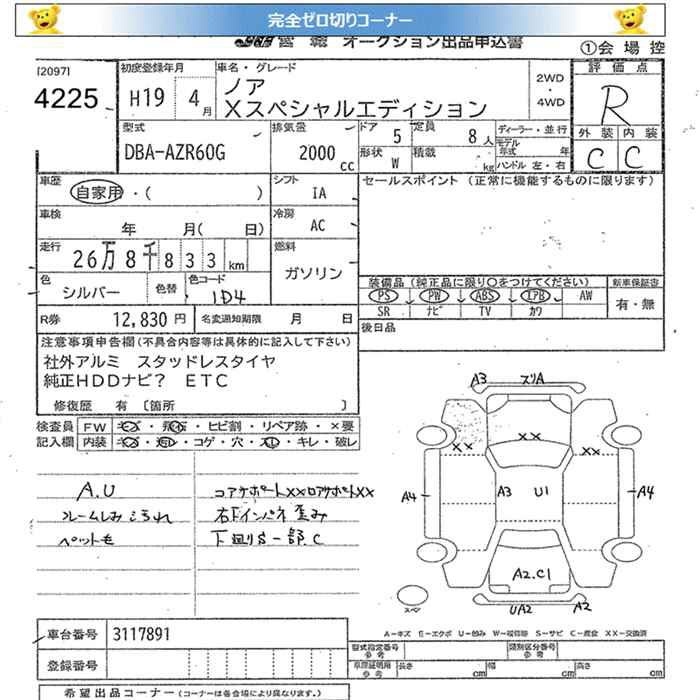 完全ゼロ切りコーナー
オークション出品申込書
①会場控
[2097]
4225
初度登録年月
H19 4月
車名・グレード
ノア
Xスペシャルエディション
2WD・4WD
評価点
R
外装 内装
C C
型式
DBA-AZR60G
排気量
2000 cc
ドア 5
定員 8人
形状 W
積載 kg
ディーラー・並行
モデル年式 年
ハンドル 左・右
車歴
自家用・( )
シフト
IA
セールスポイント (正常に機能するものに限ります)
車検
年 月( 日)
冷房
AC
走行
26万8千833 km
燃料
ガソリン
色
シルバー
色替
色コード
1D4
装備品 (純正品に限り○をつけてください)
新車保証書
PS PW ABS エアB AW
SR ナビ TV カワ
有・無
R券 12,830円
名変通知期限 月 日
後日品
注意事項申告欄(不具合内容等は具体的に記入して下さい)
社外アルミ スタッドレスタイヤ
純正HDDナビ? ETC
修復歴 有 〔箇所 〕
検査員記入欄
FW キズ・飛石・ヒビ割・リペア跡・×要
内装 キズ・汚レ・コゲ・穴・スレ・キレ・破レ
A.U
ペット毛
コアサポートXXロアサポートXX
右下インパネ歪み
下廻りS一部C
A3
XX
XX
A4
A3
U1
A4
A2.C1
スペア
UA2
A2
A-キズ E-エクボ U-凹み W-補修跡 S-サビ C-腐食 XX-交換済
車台番号 3117891
登録番号
型式指定番号 参考
類別区分番号 参考
車庫証明用 参考
長さ cm
幅 cm
高さ cm
希望出品コーナー (コーナーは各会場により異なります。)